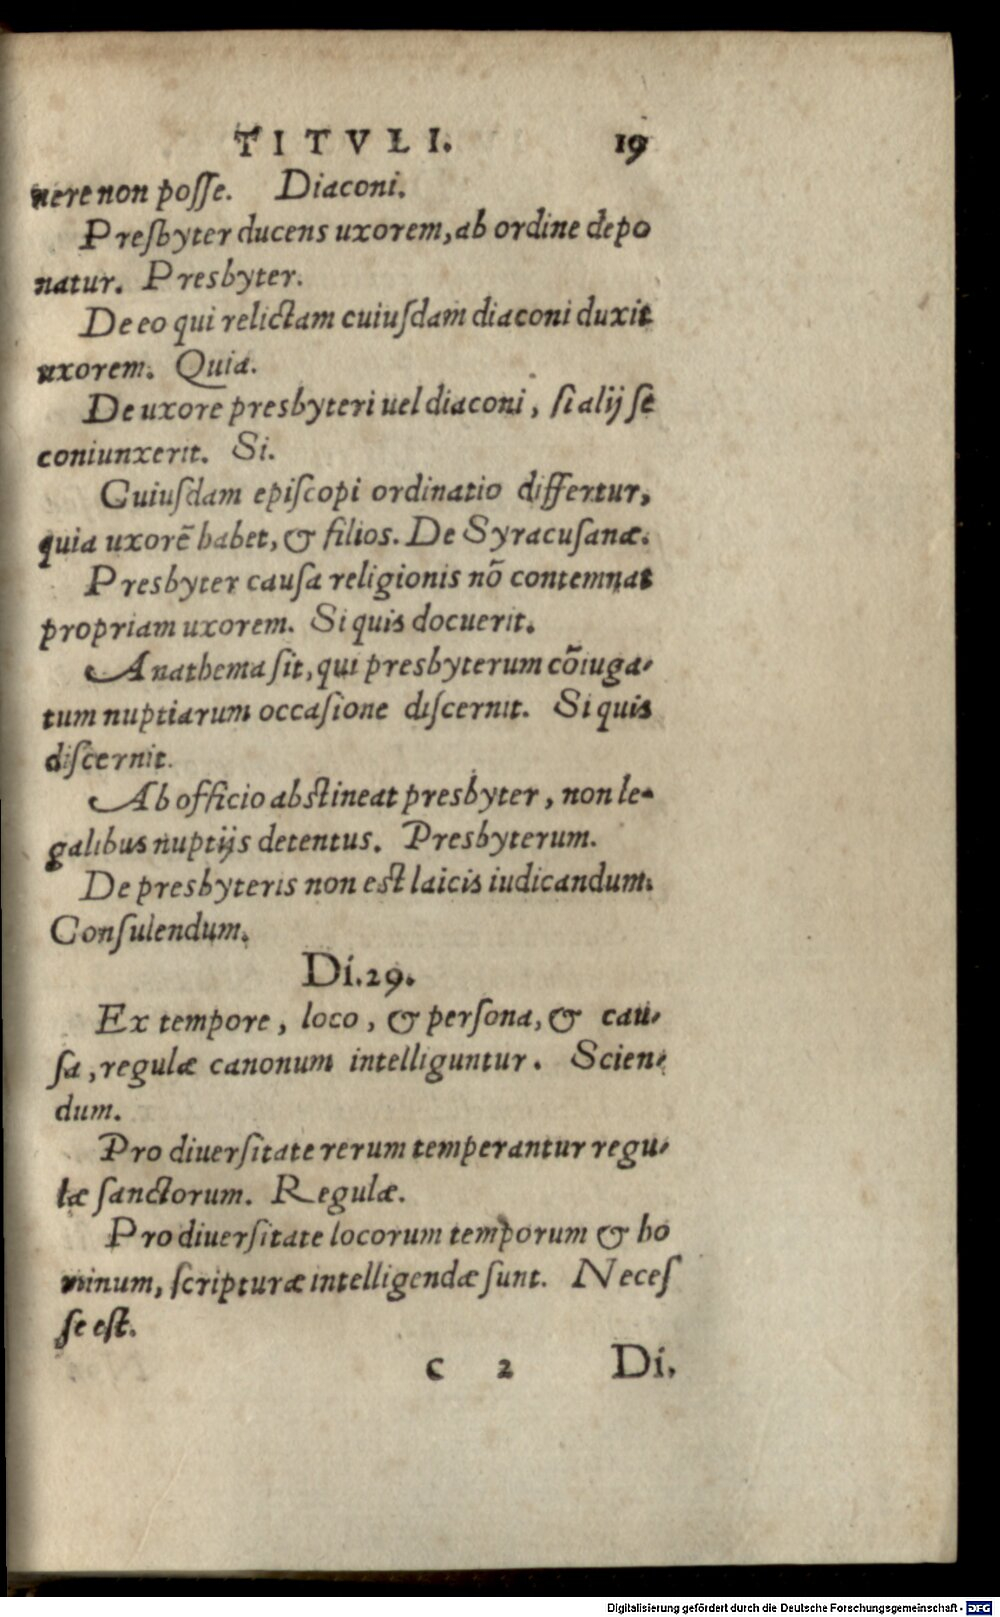 TITVLI. 19
nere non posse. Diaconi.
Presbyter ducens uxorem, ab ordine depo
natur. Presbyter.
De eo qui relictam cuiusdam diaconi duxit
uxorem. Quia.
De uxore presbyteri uel diaconi, si alij se
coniunxerit. Si.
Cuiusdam episcopi ordinatio differtur,
quia uxorē habet, & filios. De Syracusanæ.
Presbyter causa religionis nō contemnat
propriam uxorem. Si quis docuerit.
Anathema sit, qui presbyterum cōiuga-
tum nuptiarum occasione discernit. Si quis
discernit.
Ab officio abstineat presbyter, non le-
galibus nuptijs detentus. Presbyterum.
De presbyteris non est laicis iudicandum.
Consulendum.
Di.29.
Ex tempore, loco, & persona, & cau-
sa, regulæ canonum intelliguntur. Scien-
dum.
Pro diuersitate rerum temperantur regu-
læ sanctorum. Regulæ.
Pro diuersitate locorum temporum & ho
minum, scripturæ intelligendæ sunt. Neces
se est.
c 2 Di.
Digitalisierung gefördert durch die Deutsche Forschungsgemeinschaft - DFG